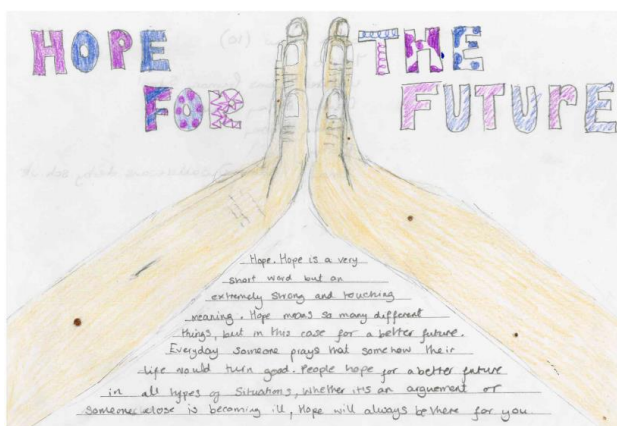 HOPE THE
FOR FUTURE
Hope. Hope is a very
short word but an
extremely strong and touching
meaning. Hope means so many different
things, but in this case for a better future.
Everyday someone prays that somehow their
life would turn good. People hope for a better future
in all types of situations, whether it's an arguement or
someone close is becoming ill, Hope will always be there for you